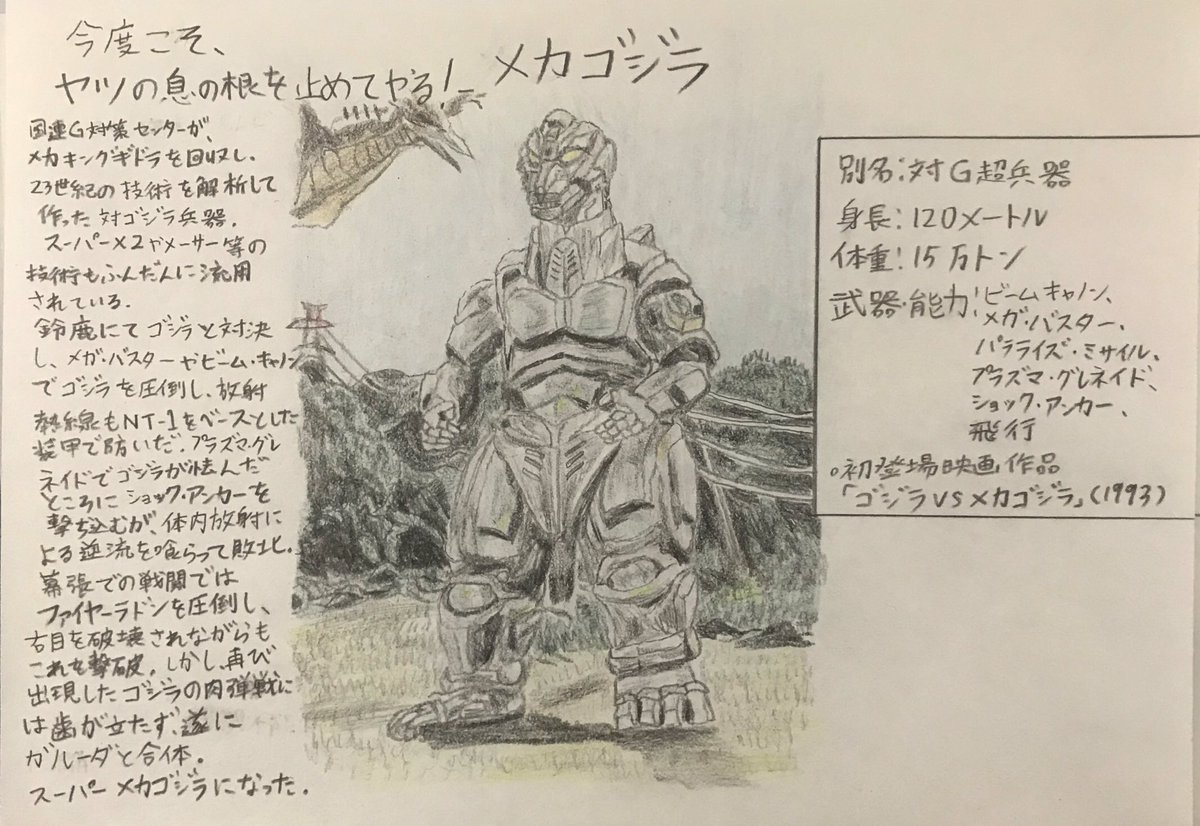 今度こそ、
ヤツの息の根を止めてやる!_ メカゴジラ
国連G対策センターが、
メカキングギドラを回収し、
23世紀の技術を解析して
作った対ゴジラ兵器。
スーパーX2やメーサー等の
技術もふんだんに流用
されている。
鈴鹿にてゴジラと対決
し、メガ・バスターやビーム・キャノン
でゴジラを圧倒し、放射
熱線もNT-1をベースとした
装甲で防いだ。プラズマ・グレ
ネイドでゴジラが怯んだ
ところにショック・アンカーを
撃ち込むが、体内放射に
よる逆流を喰らって敗北。
幕張での戦闘では
ファイヤーラドンを圧倒し、
右目を破壊されながらも
これを撃破。しかし、再び
出現したゴジラの肉弾戦に
は歯が立たず、遂に
ガルーダと合体。
スーパーメカゴジラになった。
別名:対G超兵器
身長:120メートル
体重:15万トン
武器・能力:ビームキャノン、
メガ・バスター、
パラライズ・ミサイル、
プラズマ・グレネイド、
ショック・アンカー、
飛行
。初登場映画作品
「ゴジラVSメカゴジラ」(1993)